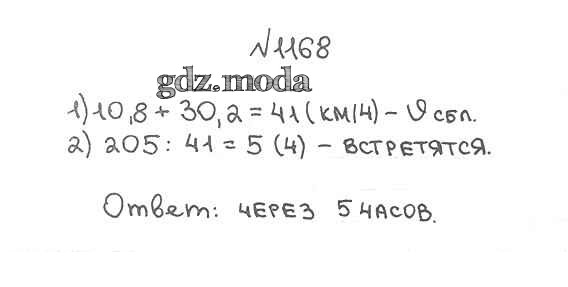 №1168
gdz.moda
1) 10,8 + 30,2 = 41 (км/ч) – υ сбл.
2) 205 : 41 = 5 (ч) – встретятся.
Ответ: через 5 часов.